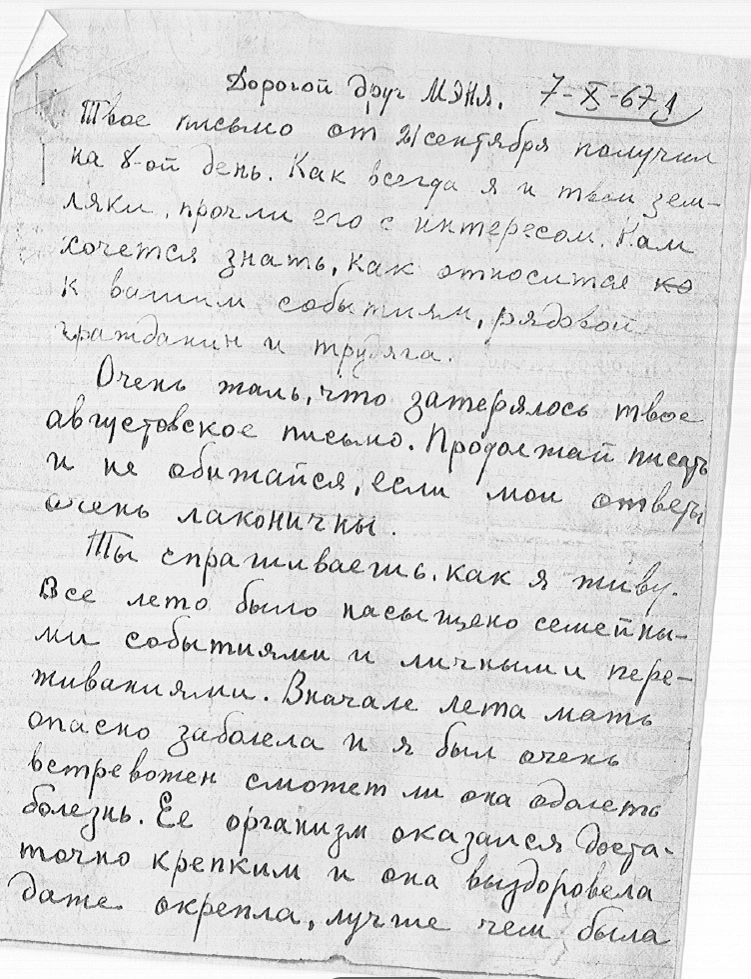 Дорогой друг Мэня. 7-X-67 1
Твое письмо от 21 сентября получил
на 8-ой день. Как всегда я и твои зем-
ляки, прочли его с интересом. Нам
хочется знать, как относится ко
к вашим событиям, рядовой
гражданин и трудяга.
Очень жаль, что затерялось твое
августовское письмо. Продолжай писать
и не обижайся, если мои ответы
очень лаконичны.
Ты спрашиваешь, как я живу.
Все лето было насыщено семейны-
ми событиями и личными пере-
живаниями. Вначале лета мать
опасно заболела и я был очень
встревожен сможет ли она одолеть
болезнь. Ее организм оказался доста-
точно крепким и она выздоровела
даже окрепла, лучше чем была